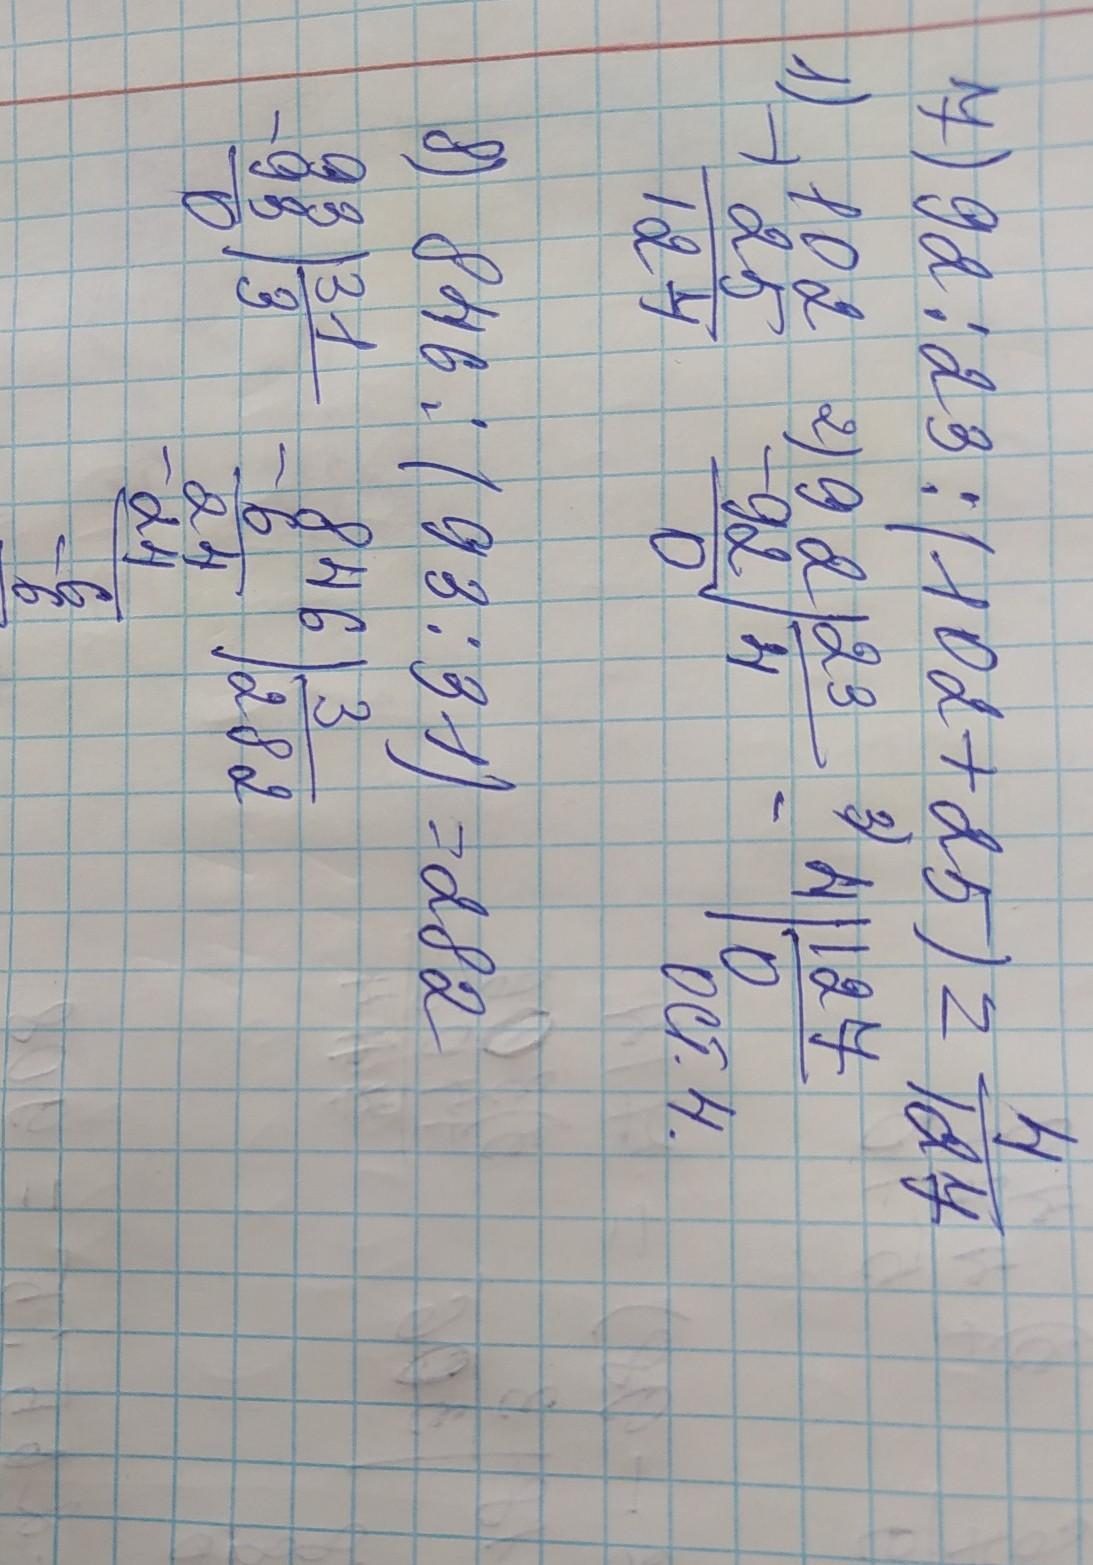 7) 92 : 23 : (102 + 25) = 4/127
1) + 102
25
127
2) 92 | 23
- 92 | 4
0
3) 4 | 127
- 0
ост. 4.
8) 846 : (93 : 31) = 282
93 | 31
- 93 | 3
0
846 | 3
- 6 | 282
24
- 24
6
- 6